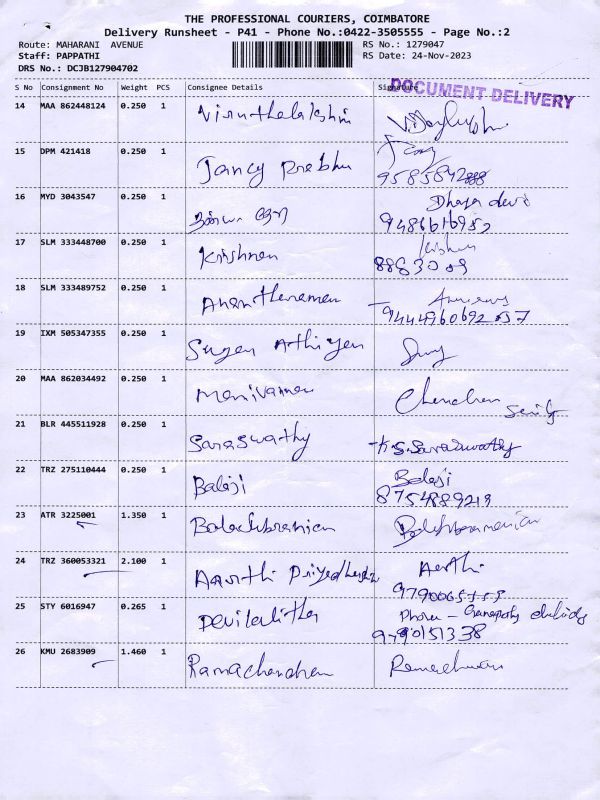 THE PROFESSIONAL COURIERS, COIMBATORE
Delivery Runsheet - P41 - Phone No.:0422-3505555 - Page No.:2
Route: MAHARANI AVENUE
RS No.: 1279047
Staff: PAPPATHI
RS Date: 24-Nov-2023
DRS No.: DCJB127904702
DOCUMENT DELIVERY
S No Consignment No Weight PCS Consignee Details Signature
14 MAA 862448124 0.250 1
15 DPM 421418 0.250 1 Jancy Prebhu
16 MYD 3043547 0.250 1 Dhaya devi
17 SLM 333448700 0.250 1 Krishnan
18 SLM 333489752 0.250 1
19 IXM 505347355 0.250 1 Sugen Athiyen
20 MAA 862034492 0.250 1 Manivannen
21 BLR 445511928 0.250 1 Saraswathy K.S.Saraswathy
22 TRZ 275110444 0.250 1 Balaji Balaji
23 ATR 3225001 1.350 1
24 TRZ 360053321 2.100 1 Aarthi Aarthi
25 STY 6016947 0.265 1 Devilalitha
26 KMU 2683909 1.460 1 Ramachandran